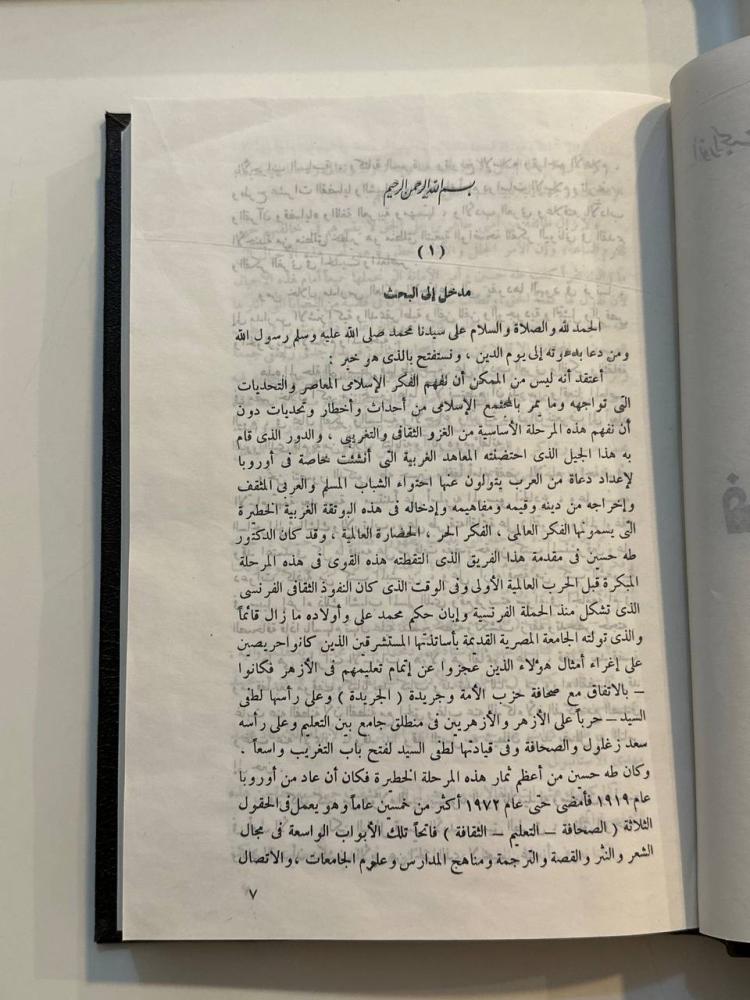 بسم الله الرحمن الرحيم
( ١ )
مدخل إلى البحث
الحمد لله والصلاة والسلام على سيدنا محمد صلى الله عليه وسلم رسول الله
ومن دعا بدعوته إلى يوم الدين ، ونستفتح بالذى هو خير :
أعتقد أنه ليس من الممكن أن نفهم الفكر الإسلامى المعاصر والتحديات
التى تواجهه وما يمر بالمجتمع الإسلامى من أحداث وأخطار وتحديات دون
أن نفهم هذه المرحلة الأساسية من الغزو الثقافى والتغريبى ، والدور الذى قام
به هذا الجيل الذى احتضنته المعاهد الغربية التى أنشئت بخاصة فى أوروبا
لإعداد دعاة من العرب يتولون عنها احتواء الشباب المسلم والعربى المثقف
وإخراجه من دينه وقيمه ومفاهيمه وإدخاله فى هذه البوتقة الغربية الخطيرة
التى يسمونها الفكر العالمى ، الفكر الحر ، الحضارة العالمية ، وقد كان الدكتور
طه حسين فى مقدمة هذا الفريق الذى التقطته هذه القوى فى هذه المرحلة
المبكرة قبل الحرب العالمية الأولى وفى الوقت الذى كان النفوذ الثقافى الفرنسى
الذى تشكل منذ الحملة الفرنسية وإبان حكم محمد على وأولاده ما زال قائماً
والذى تولته الجامعة المصرية القديمة بأساتذتها المستشرقين الذين كانوا حريصين
على إغراء أمثال هؤلاء الذين عجزوا عن إتمام تعليمهم فى الأزهر فكانوا
– بالاتفاق مع صحافة حزب الأمة وجريدة ( الجريدة ) وعلى رأسها لطفى
السيد – حرباً على الأزهر والأزهريين فى منطلق جامع بين التعليم وعلى رأسه
سعد زغلول والصحافة وفى قيادتها لطفى السيد لفتح باب التغريب واسعاً .
وكان طه حسين من أعظم ثمار هذه المرحلة الخطيرة فكان أن عاد من أوروبا
عام ١٩١٩ فأمضى حتى عام ١٩٧٢ أكثر من خمسين عاماً وهو يعمل فى الحقول
الثلاثة ( الصحافة – التعليم – الثقافة ) فاتحاً تلك الأبواب الواسعة فى مجال
الشعر والنثر والقصة والترجمة ومناهج المدارس وعلوم الجامعات ، والاتصال
٧